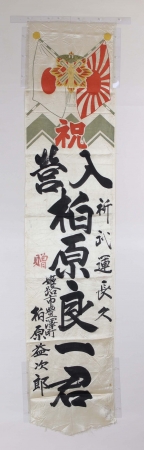 祝
入営
柏原良一君
祈武運長久
贈
姫路市豊沢町
柏原益次郎